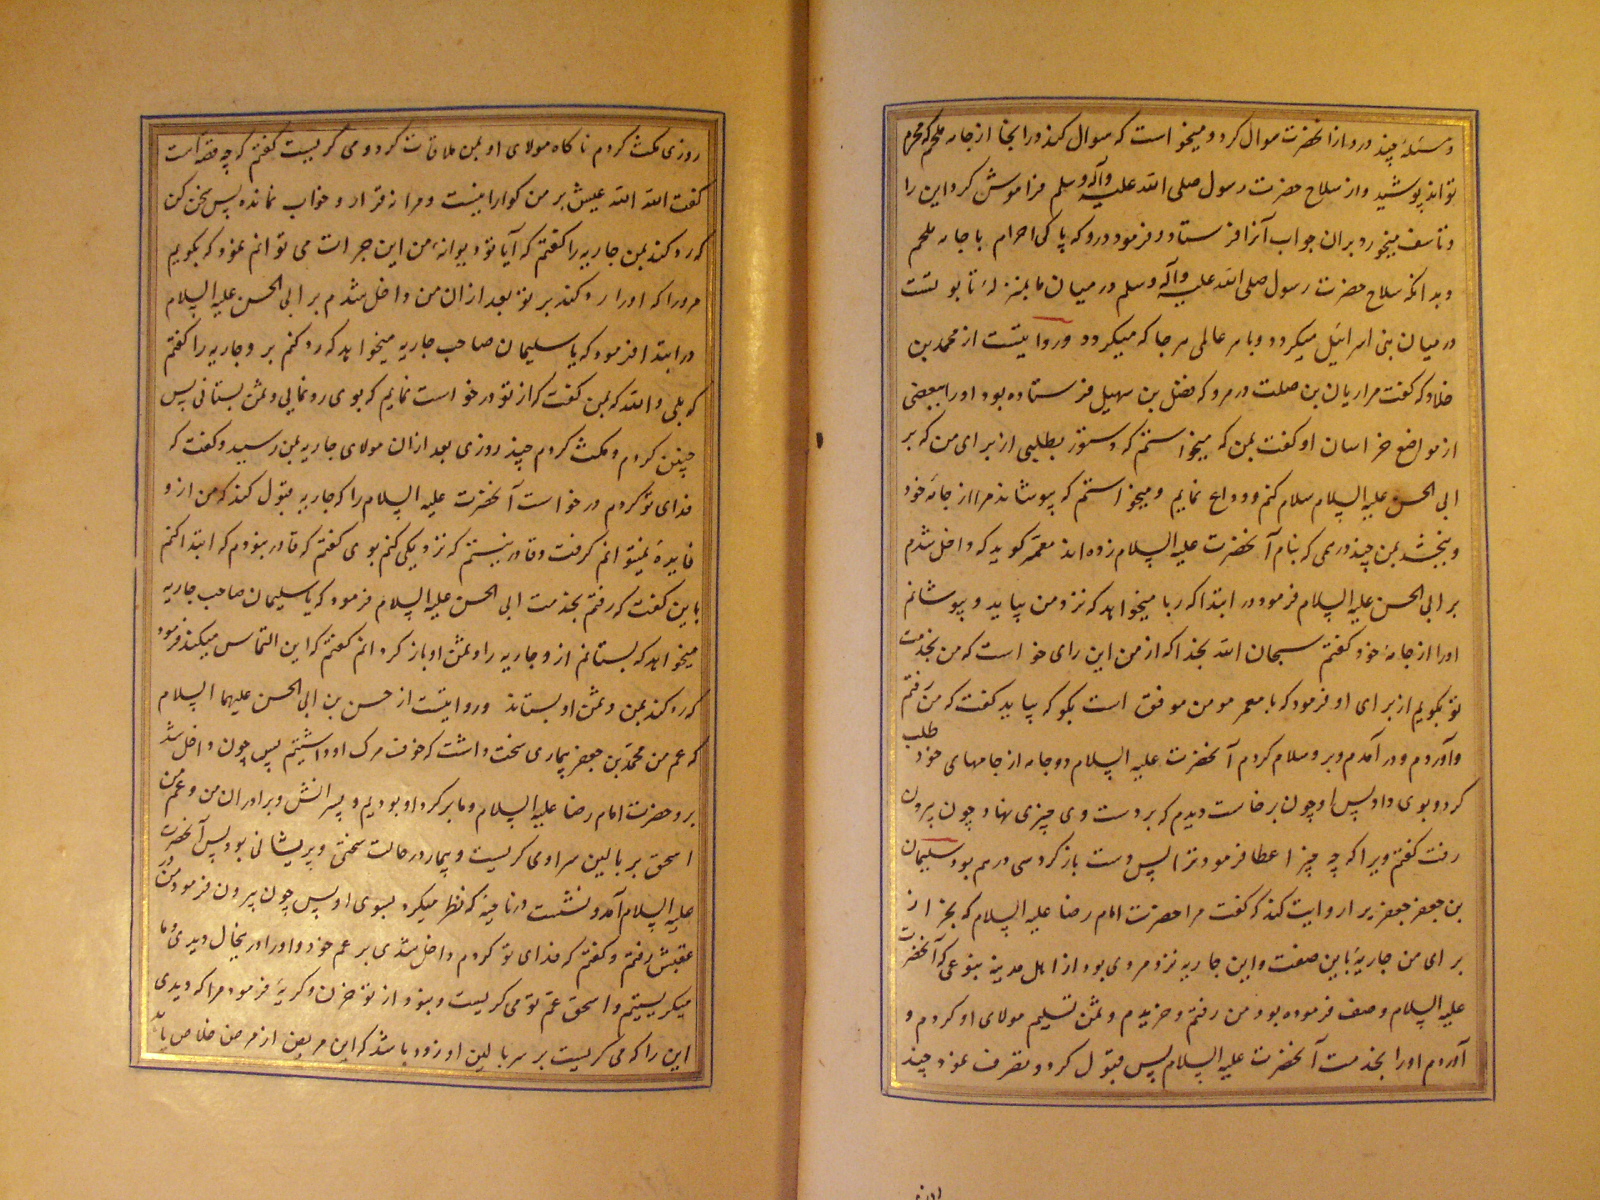 و مسئلهٔ چند در و از آنحضرت سوال کرد و میخواست که سوال کند در اینجا از جامه ملحم که محرم
تواند پوشید و از سلاح حضرت رسول صلی الله علیه وآله وسلم فراموش کرد این را
و تاسف میخورد بران جواب آنرا فرستاد و فرمود درو که پاکی احرام با جامه ملحم
و بدانکه سلاح حضرت رسول صلی الله علیه وآله وسلم در میان ما بمنزلهٔ تابوتست
در میان بنی اسرائیل میکردد و با هر عالمی هر جا که میکردد و روایتست از محمد بن
خلاد که گفت مرا ریان بن صلت در مرو که فضل بن سهیل فرستاده بود او را ببعضی
از مواضع خراسان او گفت بمن که میخواستم که دستور بطلبی از برای من که بر
ابی الحسن علیه السلام سلام کنم و وداع نمایم و میخواستم که بپوشاند مرا از جامهٔ خود
و ببخشد بمن چند درمی که بنام آنحضرت علیه السلام زده اند معمر گوید که داخل شدم
بر ابی الحسن علیه السلام فرمود در ابتدا که ربا میخواهد که نزد من بیاید و بپوشانم
او را از جامهٔ خود گفتم سبحان الله بخدا که از من این رای خواست که من بخدمت
تو بگویم از برای او فرمود که یا معمر مومن موفق است بگو که بیاید گفت که من رفتم
و آوردم و در آمدم و برو سلام کردم آنحضرت علیه السلام دو جامه از جامهای خود طلب
کرد و بوی داد پس او چون برخاست دیدم که بر دست وی چیزی نهاد و چون بیرون
رفت گفتم ویرا که چه چیز اعطا فرمود ترا پس دست باز کرد سی درم بود سلیمان
بن جعفر جعفریرا روایت کند که گفت مرا حضرت امام رضا علیه السلام که بخر از
برای من جاریهٔ باین صفت و این جاریه نزد مردی بود از اهل مدینه بنوعی که آنحضرت
علیه السلام وصف فرموده بود من رفتم و خریدم و ثمن تسلیم مولای او کردم و
آوردم او را بخدمت آنحضرت علیه السلام پس قبول کرد و تصرف نمود چند
روزی مکث کردم ناکاه مولای او بمن ملاقات کرد و می گریست گفتم که چه قصه است
گفت الله الله عیش بر من کوارا نیست و مرا نه قرار و خواب نمانده پس سخن کن
که رد کند بمن جاریه را گفتم که آیا تو دیوانهٔ من این جرات می توانم نمود که بگویم
مرورا که او را رد کند بر تو بعد ازان من داخل شدم بر ابی الحسن علیه السلام
در ابتدا فرمود که یا سلیمان صاحب جاریه میخواهد که رد کنم برو جاریه را گفتم
که بلی والله که بمن گفت که از تو درخواست نمایم که بوی رد نمایی و ثمن بستانی پس
چنین کردم و مکث کردم چند روزی بعد ازان مولای جاریه بمن رسید و گفت که
فدای تو کردم درخواست آنحضرت علیه السلام را که جاریه قبول کند که من ازو
فایده نمیتوانم گرفت و قادر نیستم که نزدیکی کنم بوی گفتم که قادر نبودم که ابتدا کنم
باین گفت که رفتم بخدمت ابی الحسن علیه السلام فرمود که یا سلیمان صاحب جاریه
میخواهد که بستانم ازو جاریه را و ثمن او باز گردانم گفتم که این التماس میکند فرمود
که رد کند بمن و ثمن او بستاند و روایتست از حسن بن ابی الحسن علیهما السلام
که عم من محمد بن جعفر بیماری سخت داشت که خوف مرک او داشتیم پس چون داخل شد
برو حضرت امام رضا علیه السلام و ما بر کرد او بودیم و پسرانش و برادران من و عم من
اسحق بر بالین سر او می گریست و بیمار در حالت سختی و پریشانی بود پس آنحضرت
علیه السلام آمد و نشست در ناحیه که نظر میکرد بسوی او پس چون بیرون فرمود من در
عقبش رفتم و گفتم که فدای تو گردم داخل شدی بر عم خود و او را در بحال دیدی و ما
میکریستیم و اسحق عم تو می گریست و نبود از تو حزن و گریهٔ فرمود مرا که دیدی
این را که می گریست بر سر بالین او زود باشد که این مریض از مرض خلاص یابد